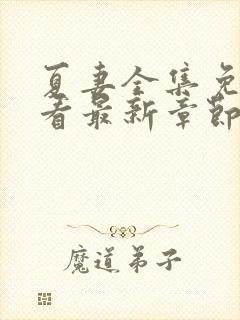 夏妻全集免
看最新章節
魔道弟子